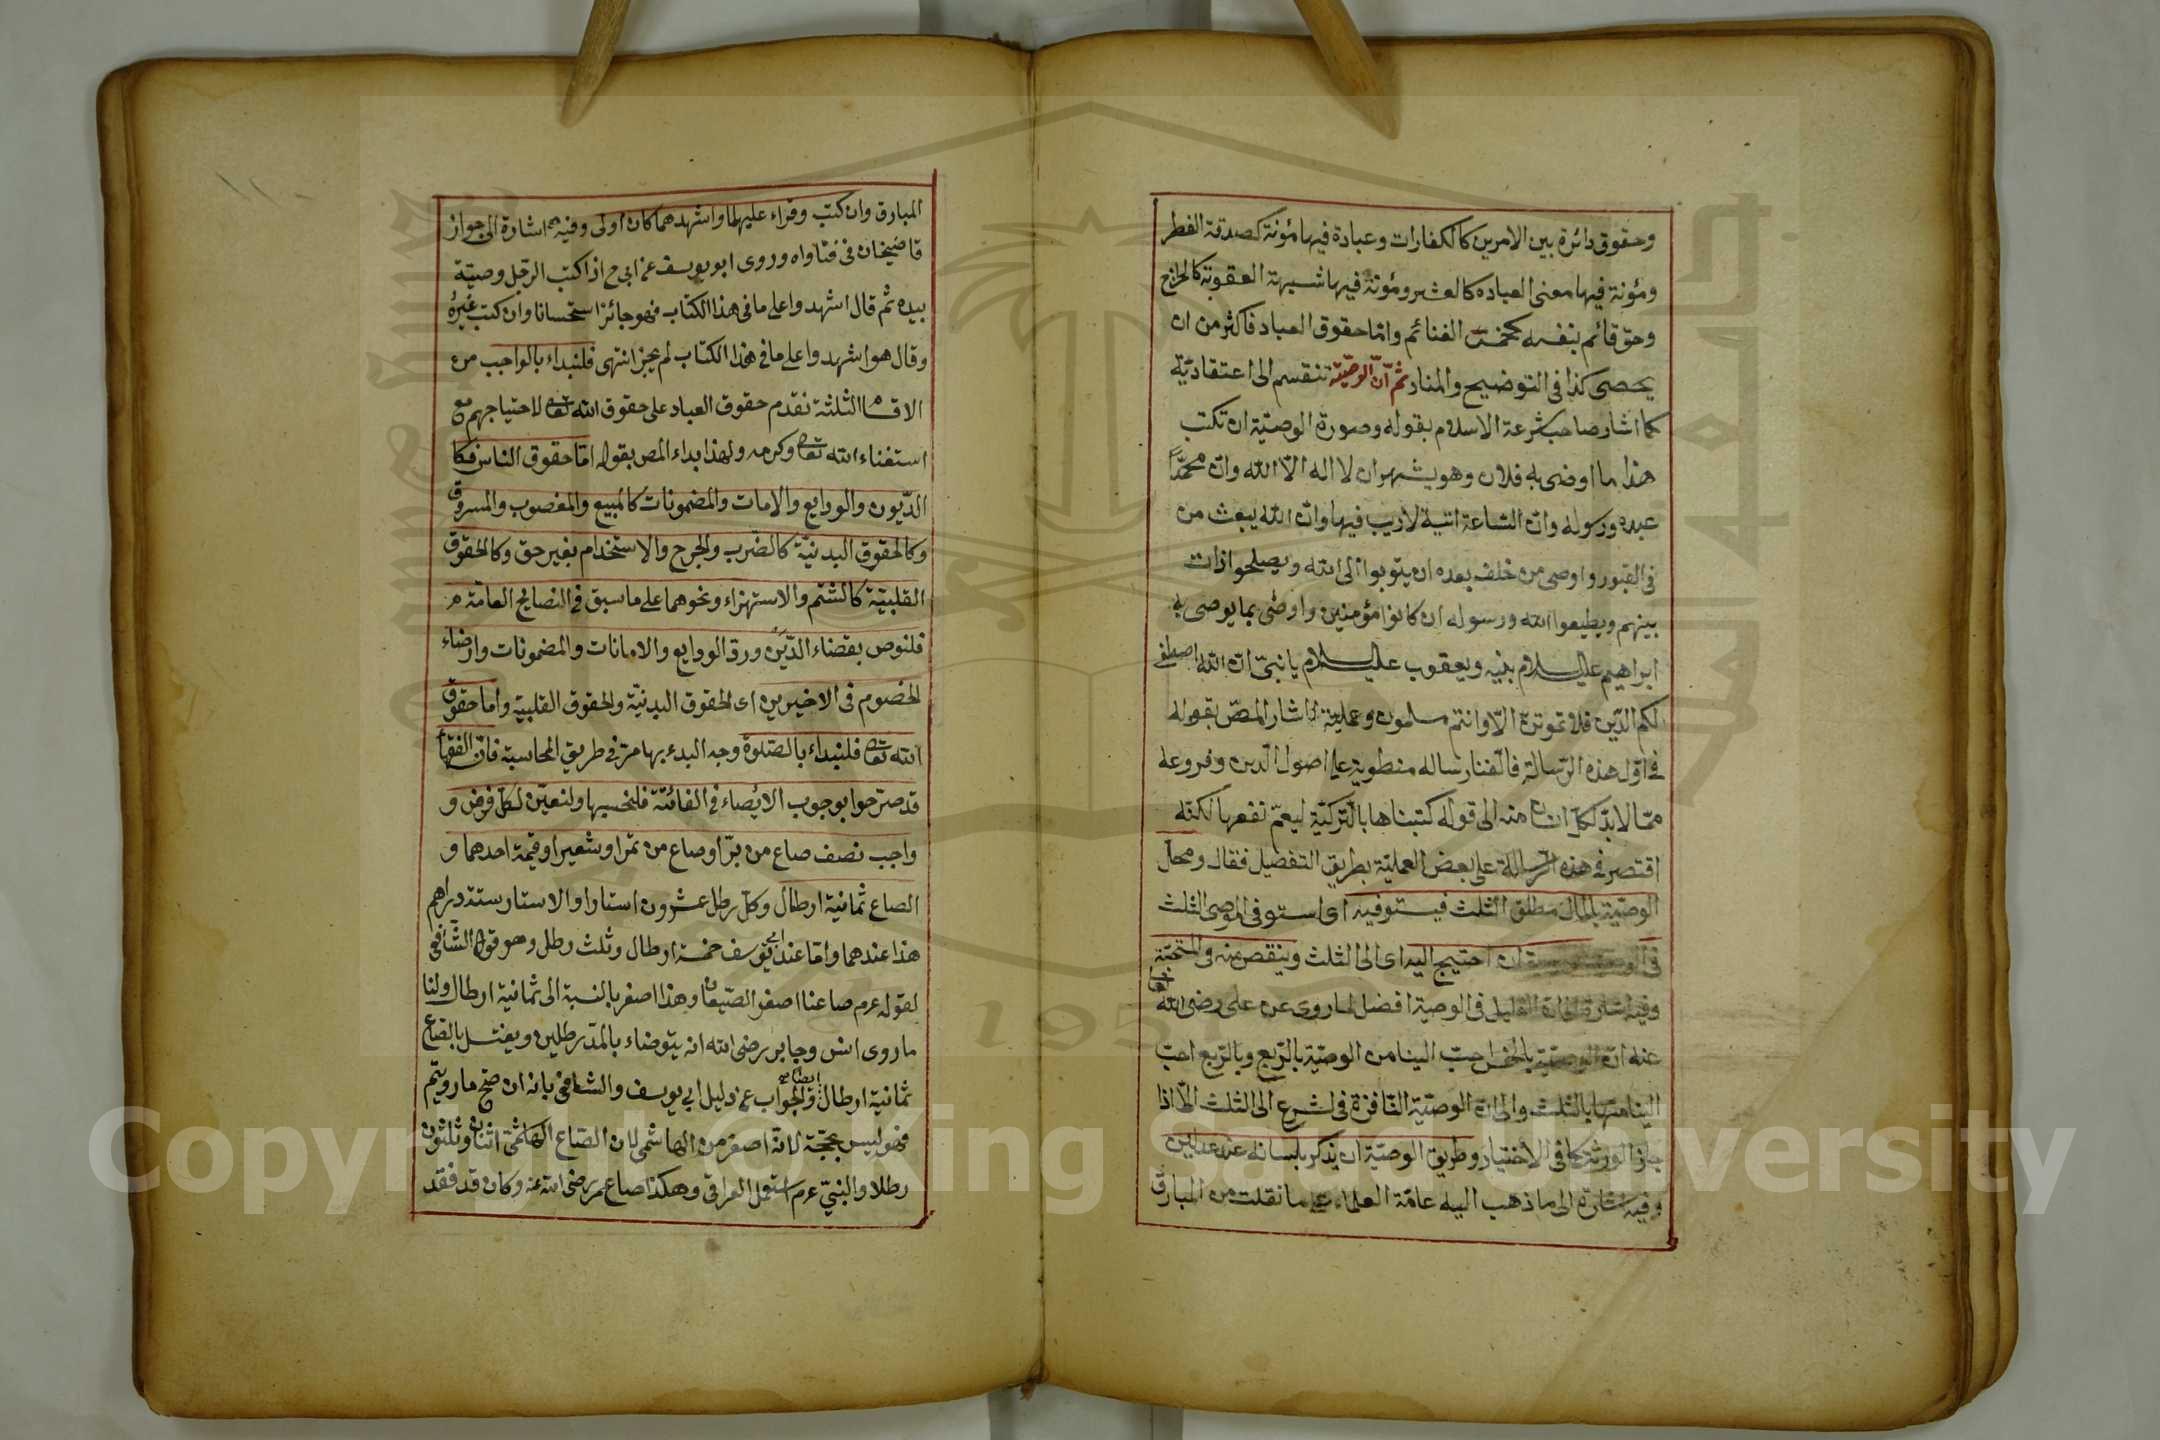 وحقوق دائرة بين الامرين كالكفارات وعبادة فيها مؤنة كصدقة الفطر
ومؤنة فيها معنى العباده كالعشر ومؤنة فيها شبهة العقوبة كالخراج
وحق قائم بنفسه كخمس الغنائم واما حقوق العباد فاكثر من ان
يحصى كذا في التوضيح والمنار ثم ان الوصية تنقسم الى اعتقادية
كما اشار صاحب شرعة الاسلام بقوله وصورة الوصية ان تكتب
هذا ما اوصى به فلان وهو يشهد ان لا اله الا الله وان محمدا
عبده ورسوله وان الساعة اتية لا ريب فيها وان الله يبعث من
في القبور واوصى من خلف بعده ان يتوبوا الى الله ويصلحوا ذات
بينهم ويطيعوا الله ورسوله ان كانوا مؤمنين واوصى بما يوصى به
ابراهيم عليه السلام بنيه ويعقوب عليه السلام يا بني ان الله اصطفى
لكم الدين فلا تموتن الا وانتم مسلمون وعملية كما اشار المص بقوله
في اول هذه الرسالة فالفنا رساله منطوية على اصول الدين وفروعه
مما لا بد لكل انسان منه الى قوله كتبناها بالتركية ليعم نفعها لكنه
اقتصر في هذه الرسالة على بعض العملية بطريق التفصيل فقال ومحل
الوصية بالمال مطلق الثلث فيستوفيه اى يستوفى الموصى الثلث
في ان احتيج اليه اى الى الثلث وينقص منه في المستحبة
وفيه اشارة الى ان القليل في الوصية افضل لما روى عن على رضى الله
عنه ان الوصية بالخمس احب الينا من الوصية بالربع وبالربع احب
الينا منها بالثلث والى ان الوصية النافذة في الشرع الى الثلث الا اذا
جاز الورثة كما في الاختيار وطريق الوصية ان يذكر بلسانه عند عدلين
وفيه اشارة الى ما ذهب اليه عامة العلماء على ما نقلت من المبارق
المبارق وان كتب وقراء عليهما واشهدهما كان اولى وفيه اشارة الى جواز
قاضيخان في فتاواه وروى ابو يوسف عن ابى ح اذا كتب الرجل وصيتة
بيده ثم قال اشهدوا على ما في هذا الكتاب فهو جائز استحسانا وان كتب غيره
وقال هو اشهدوا على ما في هذا الكتاب لم يجز انتهى فلنبداء بالواجب من
الاقسام الثلثة نقدم حقوق العباد على حقوق الله تعالى لاحتياجهم مع
استغناء الله تعالى وكرمه ولهذا بداء المص بقوله اما حقوق الناس فكا
الديون والودايع والامانات والمضمونات كالمبيع والمغصوب والمسروق
وكالحقوق البدنية كالضرب والجرح والاستخدام بغير حق وكالحقوق
القلبية كالشتم والاستهزاء ونحوهما على ما سبق في النصايح العامة
فلنوص بقضاء الدين ورد الودايع والامانات والمضمونات وارضاء
الخصوم في الاخيرين اى الحقوق البدنية والحقوق القلبية واما حقوق
الله تعالى فلنبداء بالصلوة وجه البدء بها مر في طريق المحاسبة فان الفقهاء
قد صرحوا بوجوب الايصاء في الفائتة فلنحسبها ولنعين لكل فرض و
واجب نصف صاع من بر او صاع من تمر او شعير او قيمة احدهما و
الصاع ثمانية ارطال وكل رطل عشرون استارا والاستار ستة دراهم
هذا عندهما واما عند ابى يوسف خمسة ارطال وثلث رطل وهو قول الشافعى
لقوله عم صاعنا اصغر الصيعان وهذا اصغر بالنسبة الى ثمانية ارطال ولنا
ما روى انس وجابر رضى الله انه يتوضاء بالمد رطلين ويغتسل بالصاع
ثمانية ارطال والجواب عن دليل ابي يوسف والشافعى بانه ان صح ما رويتم
فهو ليس بحجة لانه اصغر من الهاشمى لان الصاع الهاشمى اثنان وثلثون
رطلا والنبى عم استعمل العراقى وهكذا صاع عمر رضى الله عنه وكان قد فقد
Copyright © King Saud University
1957